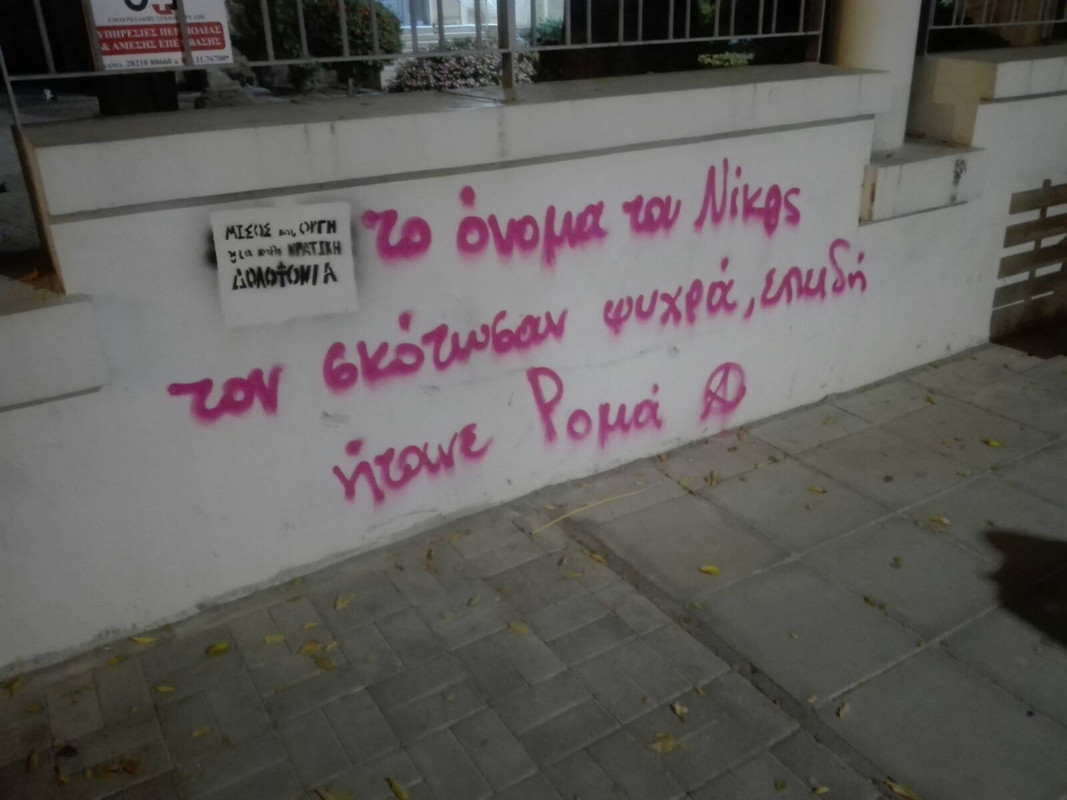 ΥΠΗΡΕΣΙΕΣ ΠΕΡΙΠΟΛΙΑΣ
& ΑΜΕΣΗΣ ΕΠΕΜΒΑΣΗΣ
28210 88660
ΜΙΣΟΣ και ΟΡΓΗ
για κάθε ΚΡΑΤΙΚΗ
ΔΟΛΟΦΟΝΙΑ
το όνομα του Νίκος
τον σκότωσαν ψυχρά, επιδή
ήτανε Ρομά Ⓐ